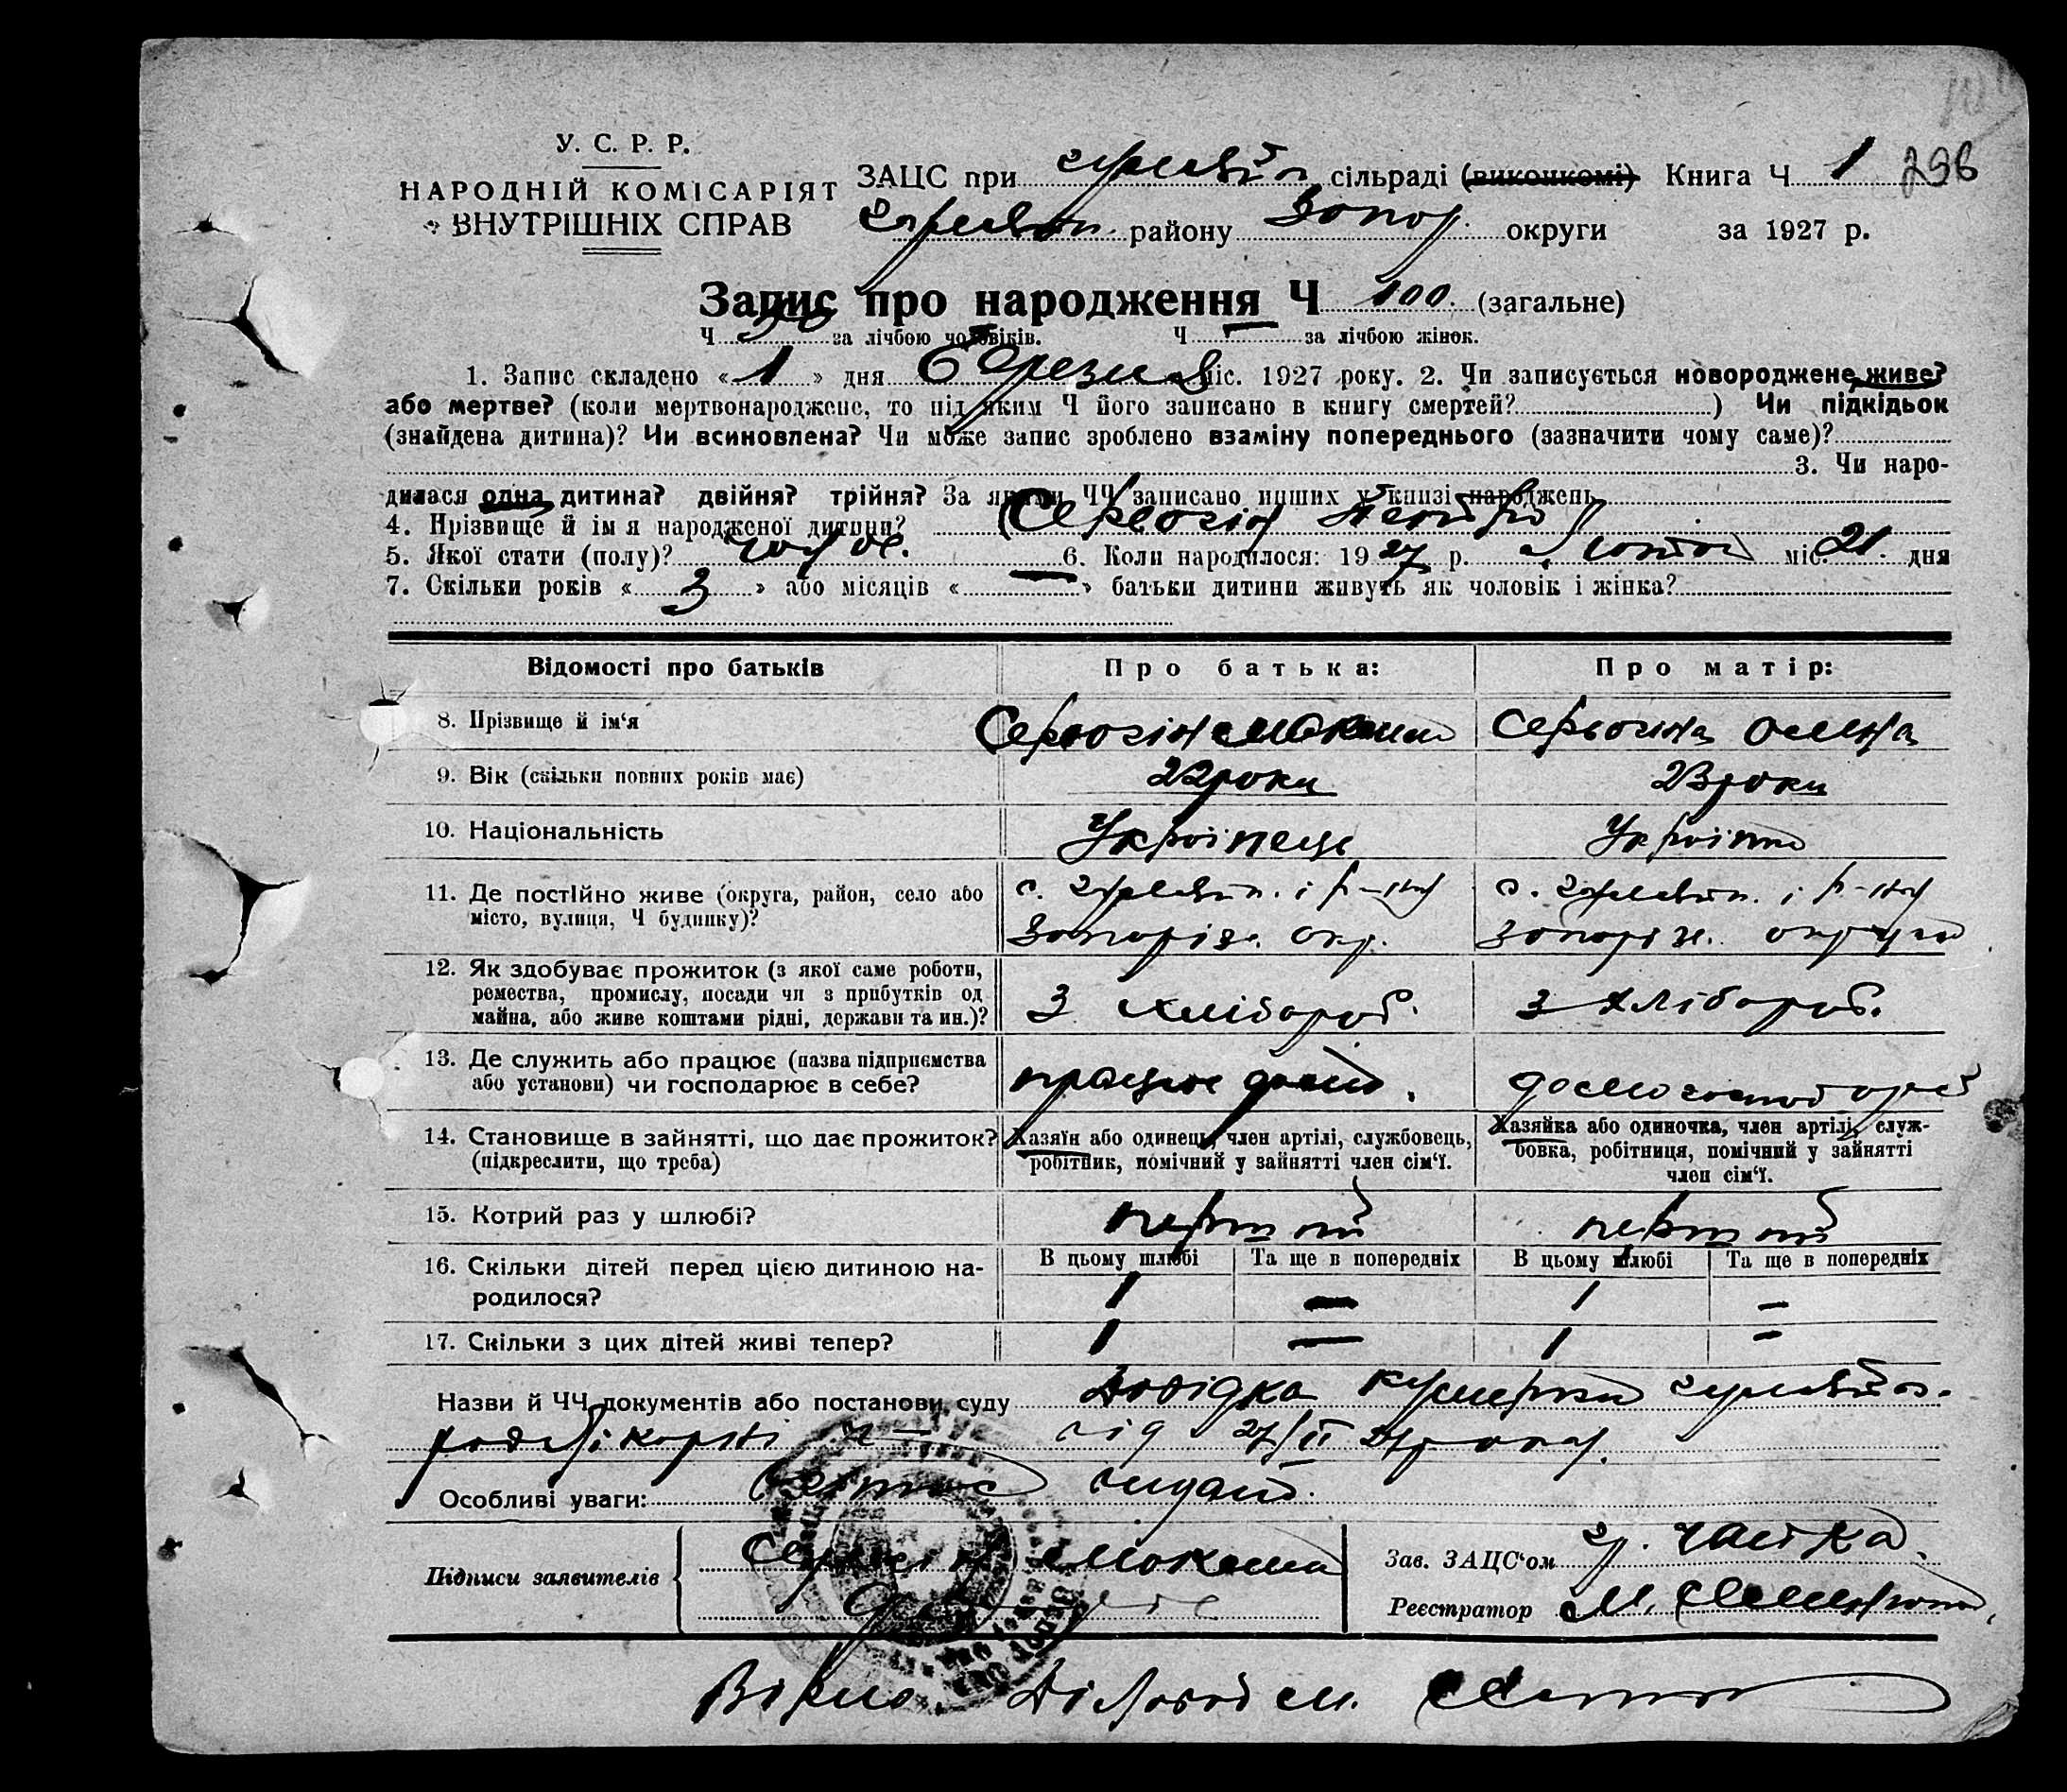 У. С. Р. Р.
НАРОДНІЙ КОМІСАРІЯТ
ВНУТРІШНІХ СПРАВ
ЗАЦС при сільраді (виконкомі) Книга Ч 1 296
району Запор. округи за 1927 р.
Запис про народження Ч 100 (загальне)
Ч за лічбою чоловіків. Ч — за лічбою жінок.
1. Запис складено « 1 » дня березня міс. 1927 року. 2. Чи записується новороджене, живе?
або мертве? (коли мертвонароджене, то під яким Ч його записано в книгу смертей? ) Чи підкідьок
(знайдена дитина)? Чи всиновлена? Чи може запис зроблено взаміну попереднього (зазначити чому саме)?
3. Чи наро-
дилася одна дитина? двійня? трійня? За якими ЧЧ записано инших у книзі народжень
4. Прізвище й ім я народженої дитини? Серьогін Петро
5. Якої стати (полу)? чолов. 6. Коли народилося: 1927 р. Лютого міс. 21 дня
7. Скільки років « 3 » або місяців « — » батьки дитини живуть як чоловік і жінка?
Відомості про батьків Про батька: Про матір:
8. Прізвище й ім‘я Серьогін Максим Серьогина Олена
9. Вік (скільки повних років має) 22 роки 23 роки
10. Національність Українець Українка
11. Де постійно живе (округа, район, село або
місто, вулиця, Ч будинку)?
с. і р-ну с. і р-ну
Запоріз. окр. Запоріз. округи
12. Як здобуває прожиток (з якої саме роботи,
ремества, промислу, посади чи з прибутків од
майна, або живе коштами рідні, держави та ин.)?
З хлібороб. З хлібороб.
13. Де служить або працює (назва підприємства
або установи) чи господарює в себе?
працює дома. домогосподарка
14. Становище в зайнятті, що дає прожиток?
(підкреслити, що треба)
Хазяїн або одинець, член артілі, службовець,
робітник, помічний у зайнятті член сім‘ї.
Хазяйка або одиночка, член артілі, служ-
бовка, робітниця, помічний у зайнятті
член сім‘ї.
15. Котрий раз у шлюбі? перший перший
16. Скільки дітей перед цією дитиною на-
родилося?
В цьому шлюбі Та ще в попередніх В цьому шлюбі Та ще в попередніх
1 — 1 —
17. Скільки з цих дітей живі тепер? 1 — 1 —
Назви й ЧЧ документів або постанови суду Довідка
від 27/II
Особливі уваги: видано.
Підписи заявителів Серьогін Максим
Зав. ЗАЦС‘ом
Реєстратор М.
Вірно. Діловод